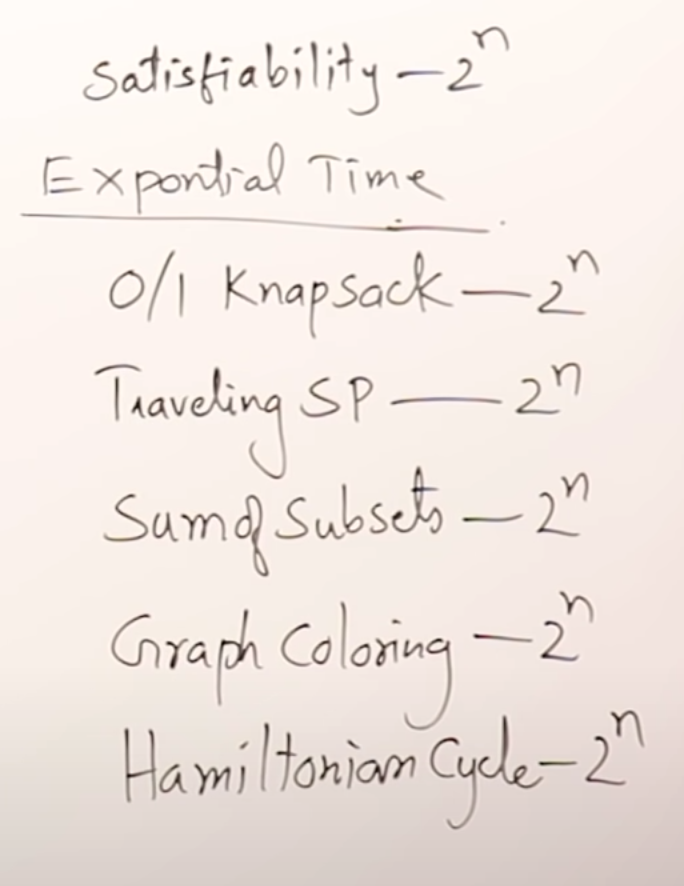 Satisfiability - 2^n
Expontial Time
0/1 Knapsack - 2^n
Traveling SP - 2^n
Sum of Subsets - 2^n
Graph Coloring - 2^n
Hamiltonian Cycle - 2^n